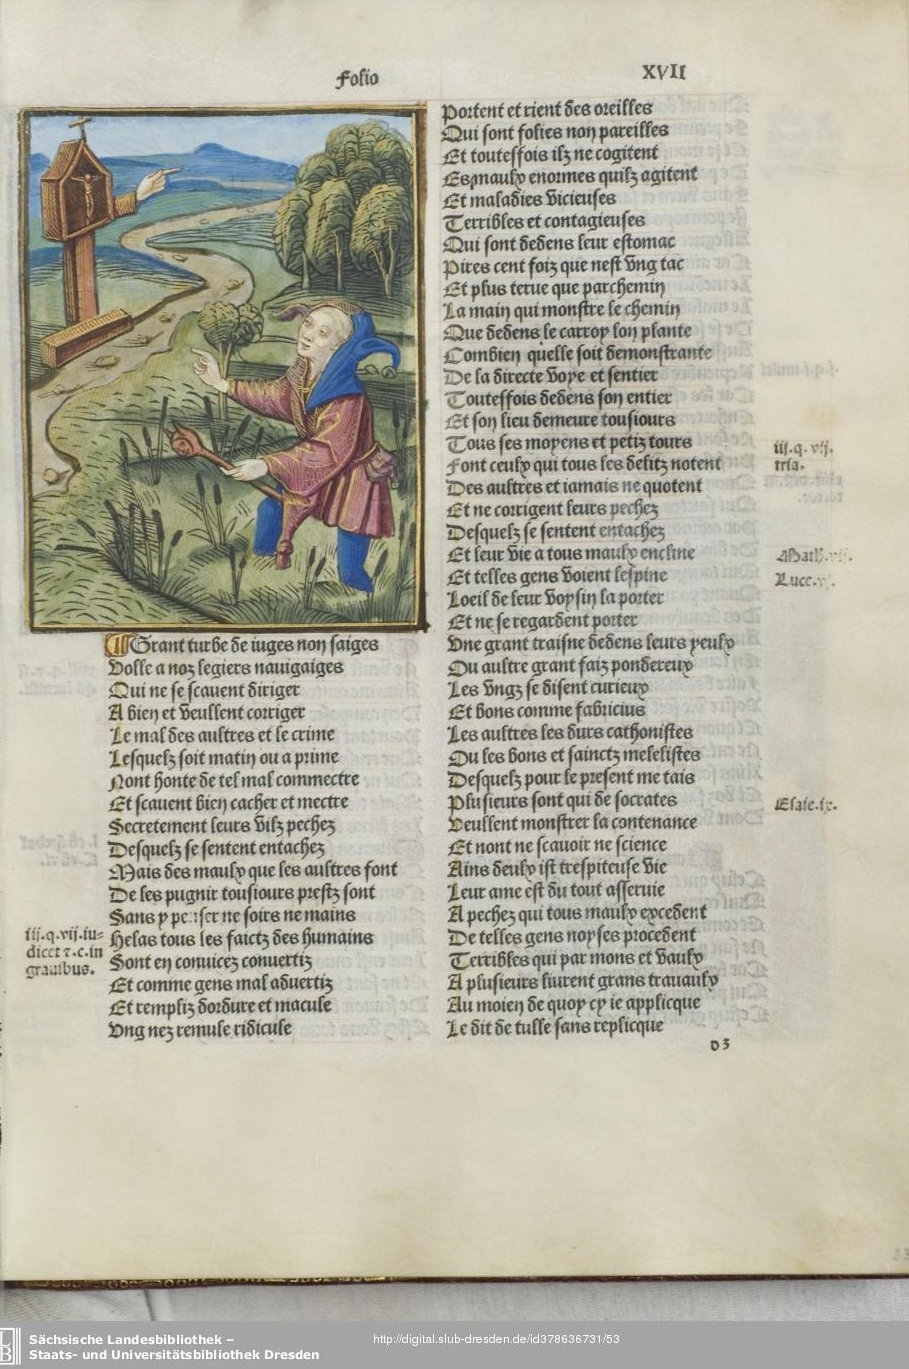 Folio
XVII
Grant turbe de iuges non saiges
Volle a noz legiers nauigaiges
Qui ne se scauent diriger
A bien et veullent corriger
Le mal des aultres et le crime
Lesquelz soit matin ou a prime
Nont honte de tel mal commectre
Et scauent bien cacher et mectre
Secretement leurs vilz pechez
Desquelz se sentent entachez
Mais des maulx que les aultres font
De les pugnir tousiours prestz sont
Sans y penser ne soirs ne mains
Helas tous les faictz des humains
Sont en conuicez conuertiz
Et comme gens mal aduertiz
Et rempliz dordure et macule
Vng nez remule ridicule
iii.q.vij.iu-
dicet ⁊.c.in
grauibus.
Portent et rient des oreilles
Qui sont folies non pareilles
Et toutesfois ilz ne cogitent
Es maulx enormes quilz agitent
Et maladies vicieuses
Terribles et contagieuses
Qui sont dedens leur estomac
Pires cent foiz que nest vng tac
Et plus terue que parchemin
La main qui monstre le chemin
Que dedens le carroy lon plante
Combien quelle soit demonstrante
De la directe voye et sentier
Toutesfois dedens son entier
Et son lieu demeure tousiours
Tous ses moyens et petiz tours
Font ceulx qui tous les delitz notent
Des aultres et iamais ne quotent
Et ne corrigent leurs pechez
Desquelz se sentent entachez
Et leur vie a tous maulx encline
Et telles gens voient lespine
Loeil de leur voysin la porter
Et ne se regardent porter
Vne grant traisne dedens leurs yeulx
Ou aultre grant faiz pondereux
Les vngz se disent curieux
Et bons comme fabricius
Les aultres les durs cathonistes
Ou les bons et sainctz melelistes
Desquelz pour le present me tais
Plusieurs sont qui de socrates
Veullent monstrer la contenance
Et nont ne scauoir ne science
Ains deulx ist trespiteuse vie
Leur ame est du tout asseruie
A pechez qui tous maulx excedent
De telles gens noyses procedent
Terribles qui par mons et vaulx
A plusieurs liurent grans trauaulx
Au moien de quoy cy ie applicque
Le dit de tulle sans replicque
iij.q.vij.
tria.
Math.vij.
Luce.vj.
Esaie.ix.
d3
Sächsische Landesbibliothek –
Staats- und Universitätsbibliothek Dresden
http://digital.slub-dresden.de/id378636731/53